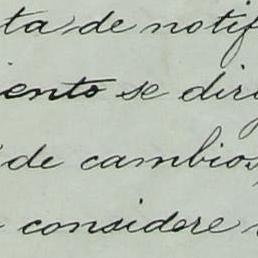 ta de notif
iento se diri
de cambios,
considere